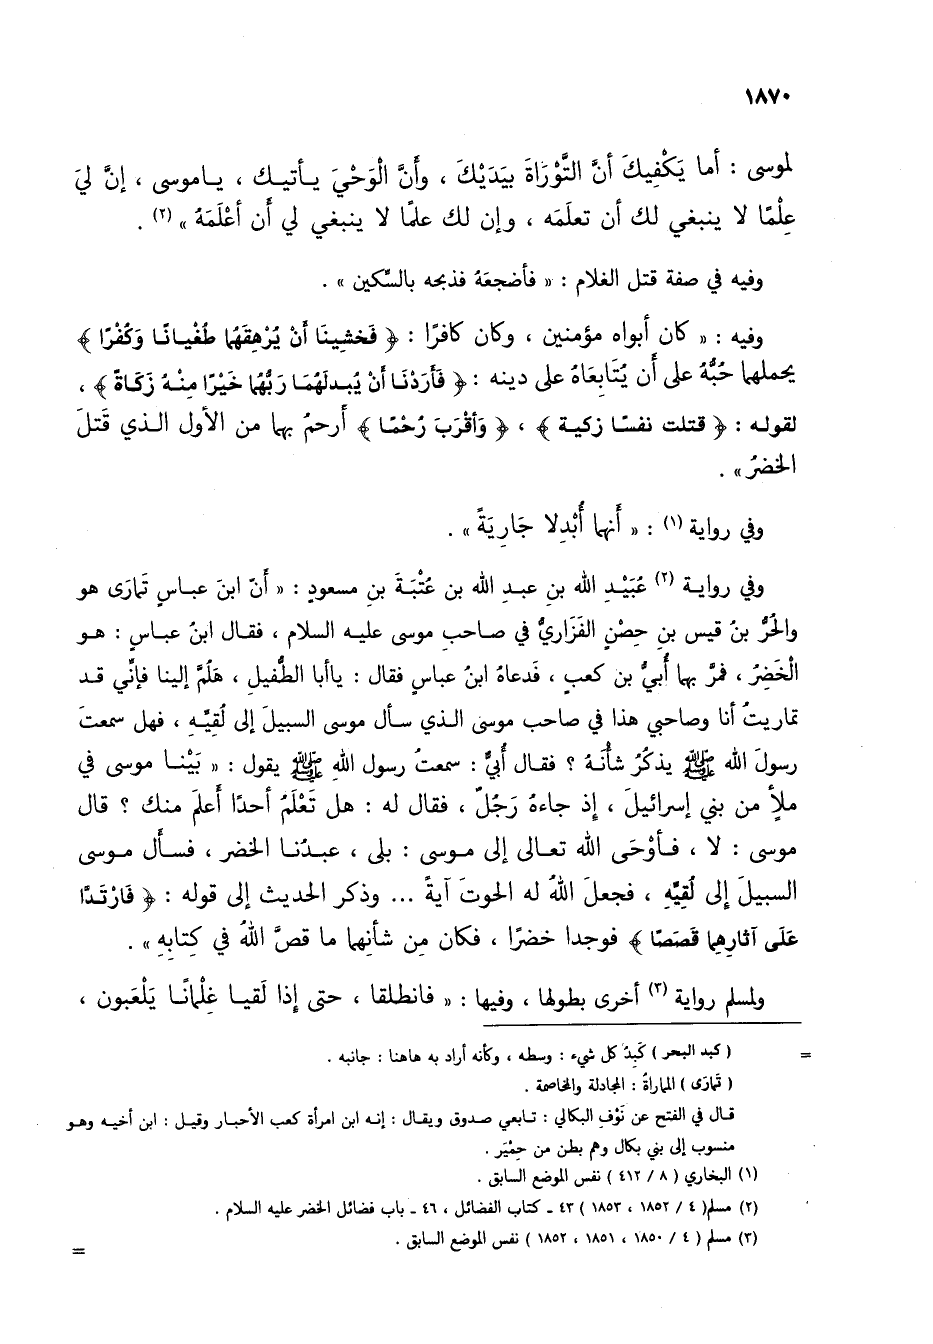 ١٨٧٠
لموسى : أما يَكْفِيكَ أنَّ التَّوْرَاةَ بِيَدَيْكَ ، وأَنَّ الْوَحْيَ يـأتيـك ، يـاموسى ، إنَّ ليَ
عِلْمًا لا ينبغي لك أن تعلَمه ، وإن لك علمًا لا ينبغي لي أن أعْلَمَهُ » (٢) .
وفيه في صفة قتل الغلام : « فأضجعَهُ فذبحه بالسِّكين » .
وفيه : « كان أبواه مؤمنين ، وكان كافرًا : ﴿ فَخشِينَا أَنْ يُرْهِقَهُما طُغْيانًا وَكُفْرًا ﴾
يحملهما حُبُّهُ على أن يُتَابِعَاهُ على دينه : ﴿ فَأَرَدْنَا أَنْ يُبدلَهُمَا رَبُّهُما خَيْرًا مِنْهُ زَكَاةً ﴾ ،
لقوله : ﴿ قتلت نفسًا زكية ﴾ ، ﴿ وَأَقْرَبَ رُحْمًا ﴾ أرحمُ بهما من الأول الـذي قَتلَ
الخضرُ » .
وفي رواية (١) : « أنهما أُبْدِلا جَارِيَةً » .
وفي روايـة (٢) عُبَيْـدِ الله بنِ عبـدِ الله بن عُتْبَةَ بنِ مسعودٍ : « أنّ ابنَ عبـاسٍ تَمارَى هو
والحُرُّ بنُ قيس بنِ حِصْنٍ الفَزَارِيُّ في صـاحبِ موسى عليـه السلام ، فقـال ابنُ عبـاسٍ : هـو
الْخَضِرُ ، فمرَّ بهما أُبيُّ بن كعبٍ ، فَدعاهُ ابنُ عباسٍ فقال : ياأبا الطُّفيلِ ، هَلُمَّ إلينا فإنِّي قـد
تماريتُ أنا وصاحبي هذا في صاحب موسى الـذي سـأل موسى السبيلَ إلى لُقِيِّـهِ ، فهل سمعتَ
رسولَ الله ﷺ يذكُرُ شأنَهُ ؟ فقـال أُبيٌّ : سمعتُ رسول اللهِ ﷺ يقول : « بَيْنـا موسى في
ملأٍ من بني إسرائيلَ ، إذ جاءهُ رَجُلٌ ، فقال له : هل تَعْلَمُ أحدًا أعلمَ منك ؟ قال
موسى : لا ، فـأوْحَى الله تعـالى إلى مـوسى : بلى ، عبـدُنـا الخضر ، فسـأل مـوسى
السبيلَ إلى لُقِيِّهِ ، فجعلَ اللهُ له الحوتَ آيةً ... وذكر الحديث إلى قوله : ﴿ فَارْتَدَّا
عَلَى آثارِهِما قَصَصًا ﴾ فوجدا خضرًا ، فكان مِن شأنهما ما قصَّ اللهُ في كتابِهِ » .
ولمسلمٍ رواية (٣) أخرى بطولها ، وفيها : « فانطلقا ، حتى إذا لَقيـا غِلْمانًـا يَلْعَبون ،
= ( كبد البحر ) كَبِدُ كل شيء : وسطه ، وكأنه أراد به هاهنا : جانبه .
( تَمَارَى ) المماراةُ : المجادلة والمخاصمة .
قال في الفتح عن نَوْفٍ البكالي : تـابعي صدوق ويقـال : إنـه ابن امرأة كعب الأحبـار وقيـل : ابن أخيـه وهـو
منسوب إلى بني بكال وهم بطن من حِمْيَر .
(١) البخاري ( ٨ / ٤١٢ ) نفس الموضع السابق .
(٢) مسلم( ٤ / ١٨٥٢ ، ١٨٥٣ ) ٤٣ ـ كتاب الفضائل ، ٤٦ ـ باب فضائل الخضر عليه السلام .
(٣) مسلم ( ٤ / ١٨٥٠ ، ١٨٥١ ، ١٨٥٢ ) نفس الموضع السابق .
=